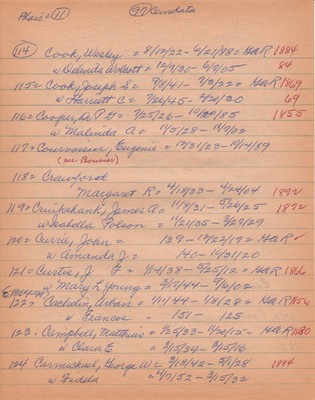 Phase 11 (97) Remdata
(114) Cook, Wesley = 8/12/22 - 6/21/88 = H&R 1884
w Odevda Wolcott = 12/9/30 - 6/7/05 84
115 = Cook, Joseph S = 9/8/41 - 7/9/22 = H&R 1869
w Harriett C = 7/20/45 - 4/20/30 69
116 = Cooper, S. T. = 7/25/26 - 1885 1855
w Malinda A = 11/5/28 - 11/9/02
117 = Courvoisier, Eugenie = 10/31/23 - 10/14/89
(see )
118 = Crawford
Margaret R = 4/18/33 - 4/24/04 1892
119 = Cruikshank, James A = 11/8/31 - 5/26/25 1872
w Isabella Folsom = 11/21/35 - 3/27/29
120 = Currie, John = 129 - 12/22/17 = H&R ✓
w Amanda J = 140 - 10/31/20
121 = Curtis, J F = 1/4/38 - 9/25/12 = H&R 1866
w Mary L Young = 3/17/44 - 7/6/02
122 = Cachelin, Urban = 1/1/44 - 4/8/28 = H&R 1856
w Frances = 151 - 125
123 - Campbell, Matthias = 1/25/33 - 11/20/15 - H&R 1880
w Clara E = 3/15/34 - 3/15/16
124 Carmichael, George W = 3/18/42 - 2/1/28 1884
w Fidela = 4/9/52 - 3/15/32